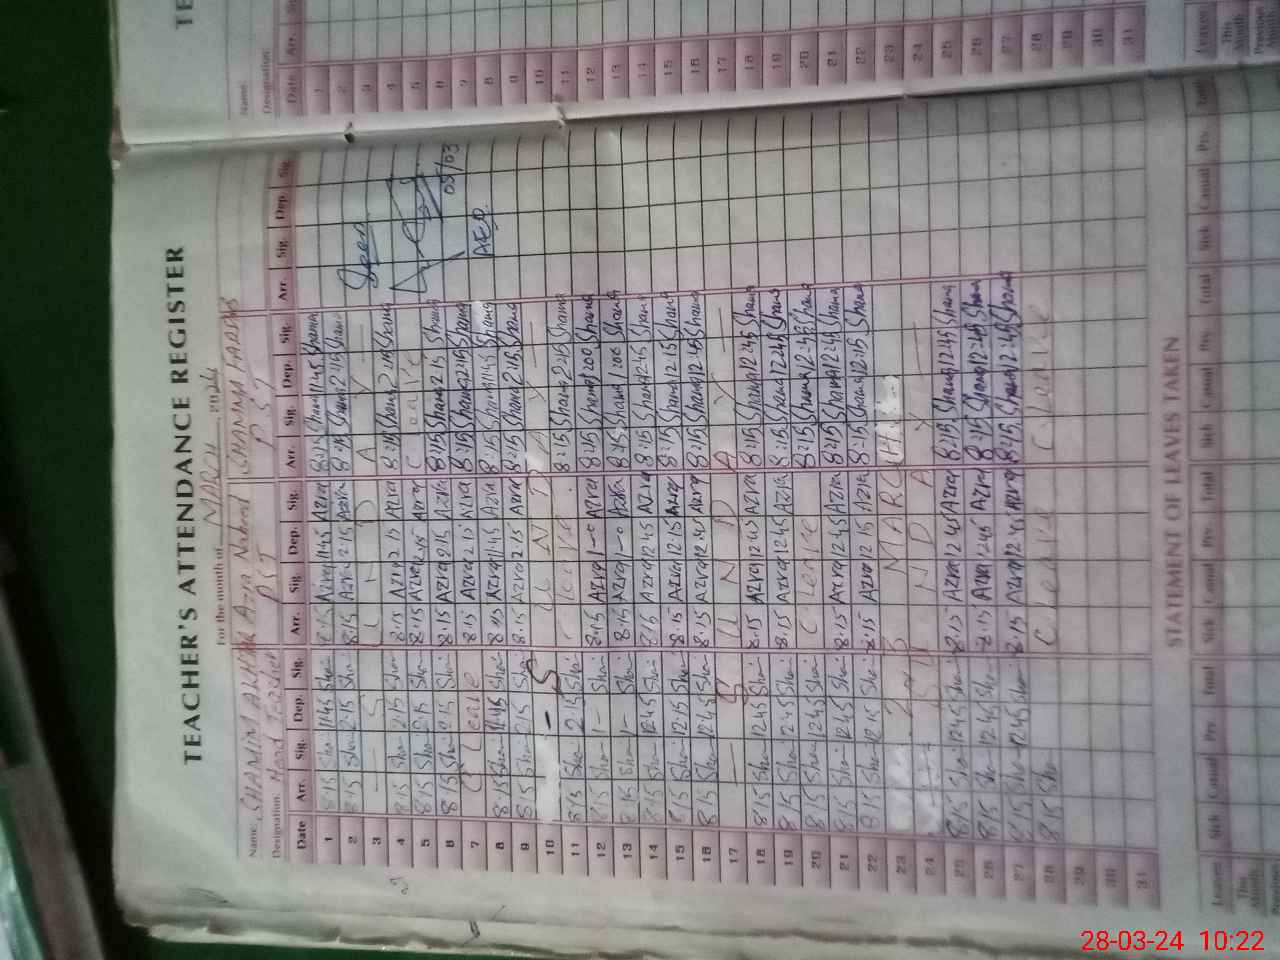 TEACHER'S ATTENDANCE REGISTER
For the month of MARCH, 2024
Name: SHAMIM AKHTAR Azra SHAMA
Designation. Head Teacher PST PST
Date Arr. Sig. Dep. Sig. Arr. Sig. Dep. Sig. Arr. Sig. Dep. Sig. Arr. Sig. Dep. Sig.
1 8:15 Sha 11:45 Sha 8:15 Azra 11:45 Azra 8:15 Shama 11:45 Shama
2 8:15 Sha 2:15 Sha 8:15 Azra 2:15 Azra 8:15 Shama 2:15 Shama Seen
3 — S U N D A Y —
4 8:15 Sha 2:15 Sha 8:15 Azra 2:15 Azra 8:15 Shama 2:15 Shama
5 8:15 Sha 2:15 Sha 8:15 Azra 2:15 Azra C Leave
6 8:15 Sha 2:15 Sha 8:15 Azra 2:15 Azra 8:15 Shama 2:15 Shama 05/03
7 C Leave 8:15 Azra 2:15 Azra 8:15 Shama 2:15 Shama AEO
8 8:15 Sha 11:45 Sha 8:15 Azra 11:45 Azra 8:15 Shama 11:45 Shama
9 8:15 Sha 2:15 Sha 8:15 Azra 2:15 Azra 8:15 Shama 2:15 Shama
10 — S U N D A Y —
11 8:15 Sha 2:15 Sha C Leave 8:15 Shama 2:15 Shama
12 8:15 Sha 1— Sha 8:15 Azra 1—0 Azra 8:15 Shama 1:00 Shama
13 8:15 Sha 1— Sha 8:15 Azra 1—0 Azra 8:15 Shama 1:00 Shama
14 8:15 Sha 12:45 Sha 8:15 Azra 12:45 Azra 8:15 Shama 12:45 Shama
15 8:15 Sha 12:15 Sha 8:15 Azra 12:15 Azra 8:15 Shama 12:15 Shama
16 8:15 Sha 12:45 Sha 8:15 Azra 12:45 Azra 8:15 Shama 12:45 Shama
17 — S U N D A Y —
18 8:15 Sha 12:45 Sha 8:15 Azra 12:45 Azra 8:15 Shama 12:45 Shama
19 8:15 Sha 12:45 Sha 8:15 Azra 12:45 Azra 8:15 Shama 12:45 Shama
20 8:15 Sha 12:45 Sha C Leave 8:15 Shama 12:45 Shama
21 8:15 Sha 12:45 Sha 8:15 Azra 12:45 Azra 8:15 Shama 12:45 Shama
22 8:15 Sha 12:15 Sha 8:15 Azra 12:15 Azra 8:15 Shama 12:15 Shama
23 23 MARCH
24 S U N D A Y —
25 8:15 Sha 12:45 Sha 8:15 Azra 12:45 Azra 8:15 Shama 12:45 Shama
26 8:15 Sha 12:45 Sha 8:15 Azra 12:45 Azra 8:15 Shama 12:45 Shama
27 8:15 Sha 12:45 Sha 8:15 Azra 12:45 Azra 8:15 Shama 12:45 Shama
28 8:15 Sha C Leave C Leave
29
30
31
STATEMENT OF LEAVES TAKEN
Leaves Sick Casual Prv. Total Sick Casual Prv. Total Sick Casual Prv. Total Sick Casual Prv. Total
This Month
Previous
TE
Name:
Designation
Date Arr.
1
2
3
4
5
6
7
8
9
10
11
12
13
14
15
16
17
18
19
20
21
22
23
24
25
26
27
28
29
30
31
Leaves
This Month
Previous Month
28-03-24 10:22